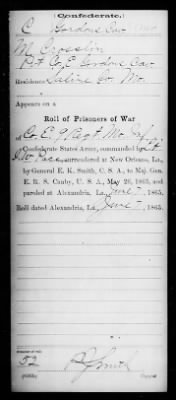 Confederate.
C Gordons Cav Mo.
M Crosslin
Pvt Co. E. Gordons Cav
Residence Saline Co Mo.
Appears on a
Roll of Prisoners of War
of Co. E, 9 Regt Mo
Confederate States Army, commanded by Lt
surrendered at New Orleans, La.,
by General E. K. Smith, C. S. A., to Maj. Gen.
E. R. S. Canby, U. S. A., May 26, 1865, and
paroled at Alexandria, La., June 7, 1865.
Roll dated Alexandria, La., June 7, 1865.
52
Smith